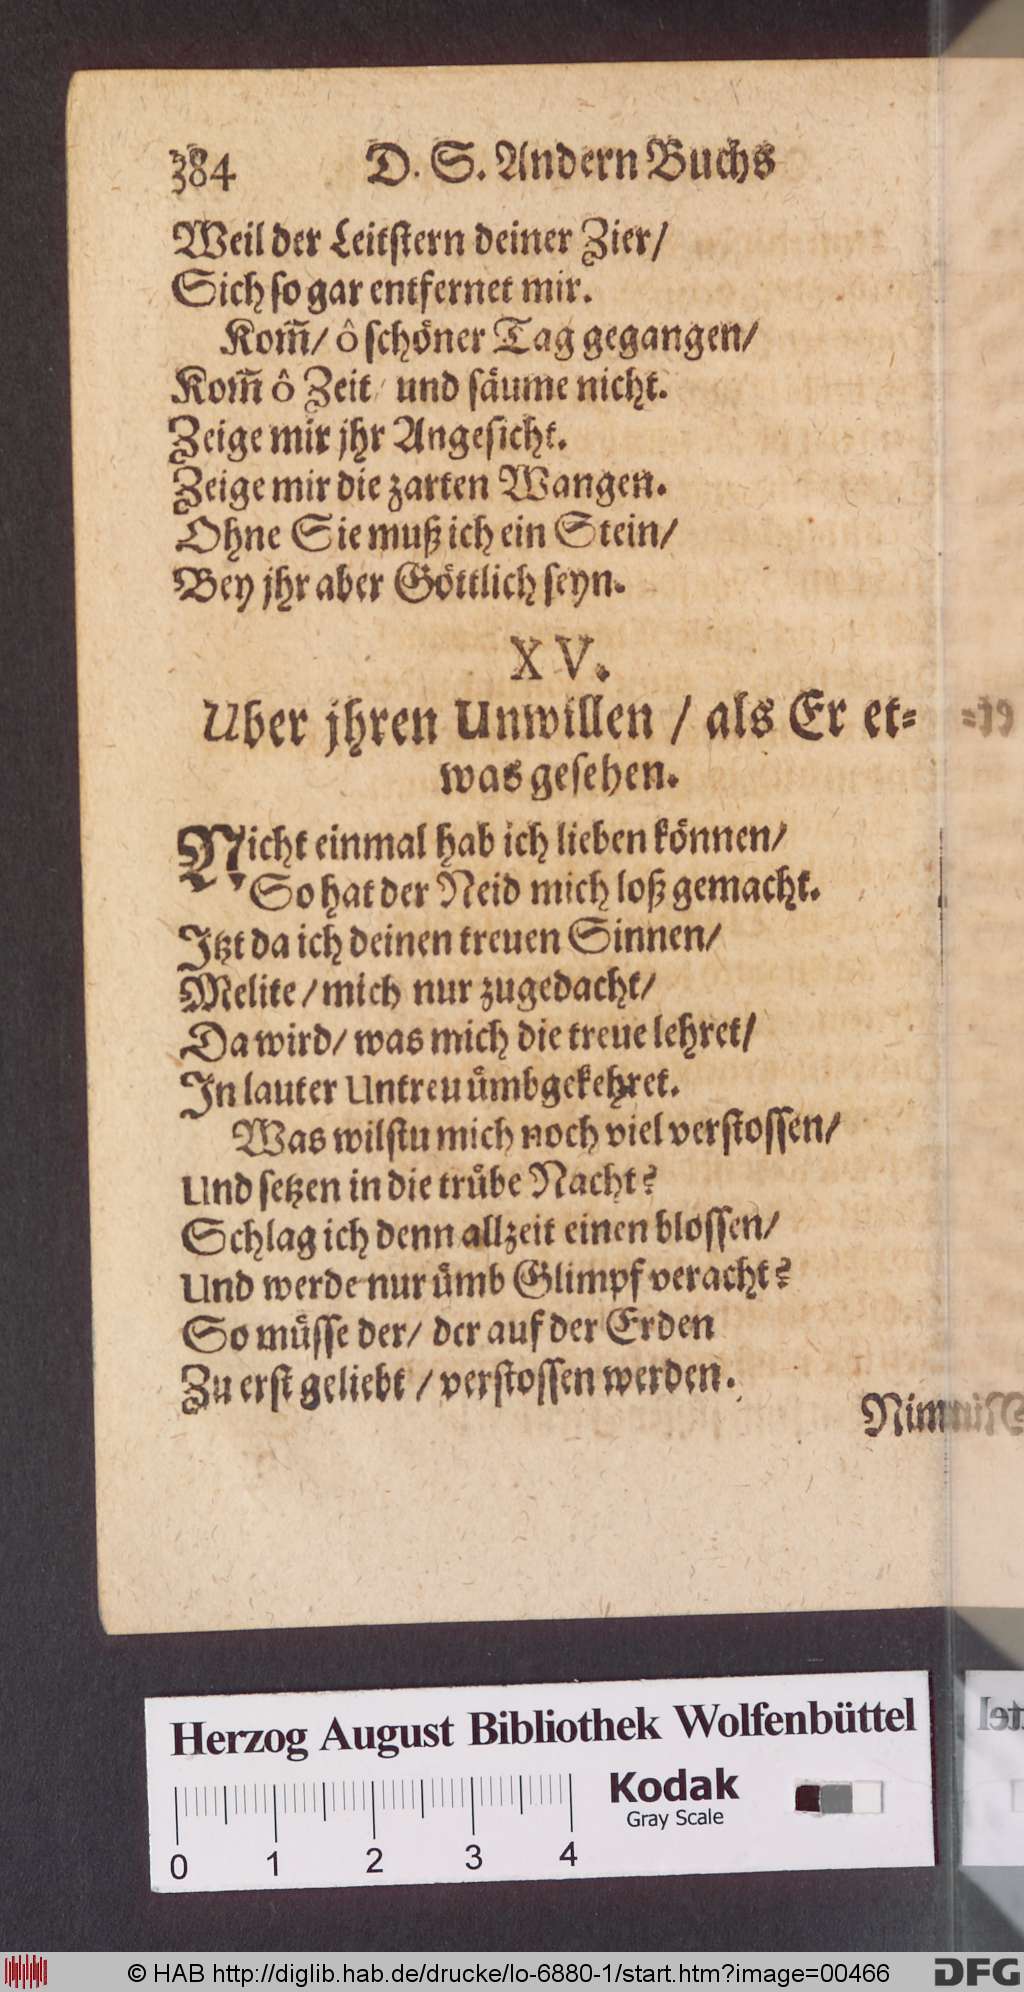 384 D. S. Andern Buchs
Weil der Leitſtern deiner Zier/
Sich ſo gar entfernet mir.
Kom̃/ ô ſchöner Tag gegangen/
Kom̃ ô Zeit/ und ſäume nicht.
Zeige mir jhr Angeſicht.
Zeige mir die zarten Wangen.
Ohne Sie muß ich ein Stein/
Bey jhr aber Göttlich ſeyn.
XV.
Uber jhren Unwillen / als Er et⸗
was geſehen.
Nicht einmal hab ich lieben können/
So hat der Neid mich loß gemacht.
Itzt da ich deinen treuen Sinnen/
Melite / mich nur zugedacht/
Da wird/ was mich die treue lehret/
In lauter Untreu uͤmbgekehret.
Was wilſtu mich noch viel verſtoſſen/
Und ſetzen in die truͤbe Nacht?
Schlag ich denn allzeit einen bloſſen/
Und werde nur uͤmb Glimpf veracht?
So muͤſſe der/ der auf der Erden
Zu erſt geliebt / verſtoſſen werden.
Herzog August Bibliothek Wolfenbüttel
Kodak
Gray Scale
0 1 2 3 4
© HAB http://diglib.hab.de/drucke/lo-6880-1/start.htm?image=00466
DFG